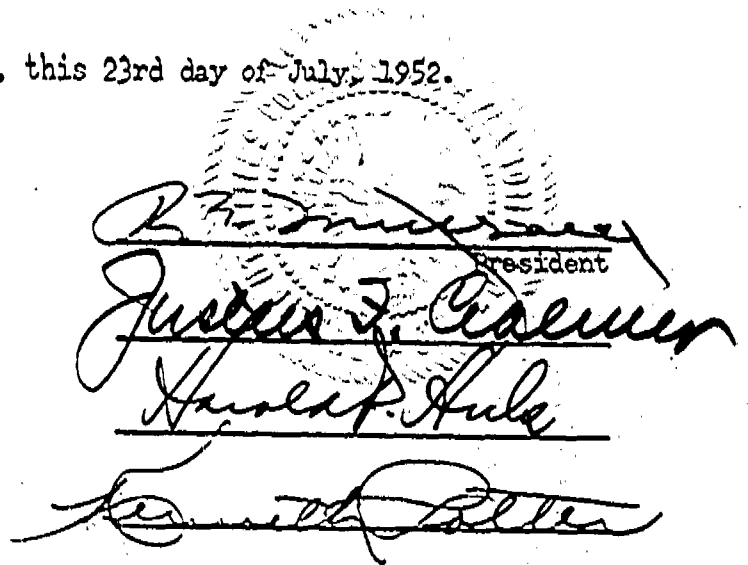 , this 23rd day of July, 1952.
President
Justus F. Craemer
Harold P. Huls
Kenneth Potter